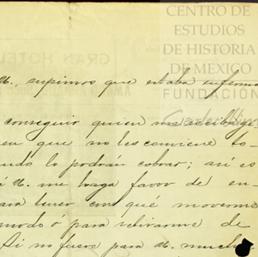 CENTRO DE
ESTUDIOS
DE HISTORIA
DE MEXICO
FUNDACIÓN
GRAN HOTEL
V., supimos que estaba enfermo
conseguir quien me
en que no les conviene to-
lo podrán cobrar; así es
á V. me haga favor de en-
para tener con qué moverme
modo ó para retirarme de
Si no fuese para V. mucha